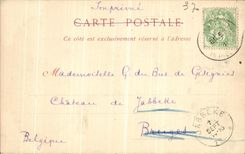 Imprimé
37
CARTE POSTALE
Ce côté est exclusivement réservé à l'adresse
Mademoiselle G. du Bus de Gisignies
Château de Jabbeke
Bruges
Belgique
JABBEKE